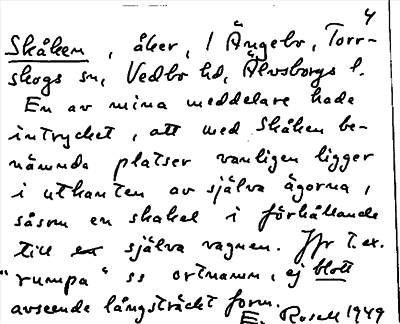 4
Skåken, åker, i Ängebo, Torr-
skogs sn, Vedbo hd, Älvsborgs l.
En av mina meddelare hade
intrycket, att med Skåken be-
nämnda platser vanligen ligger
i utkanten av själva ägorna,
såsom en skakel i förhållande
till en själva vagnen. Jfr t.ex.
"rumpa" ss ortnamn, ej blott
avseende långsträckt form.
E. Rosell 1949